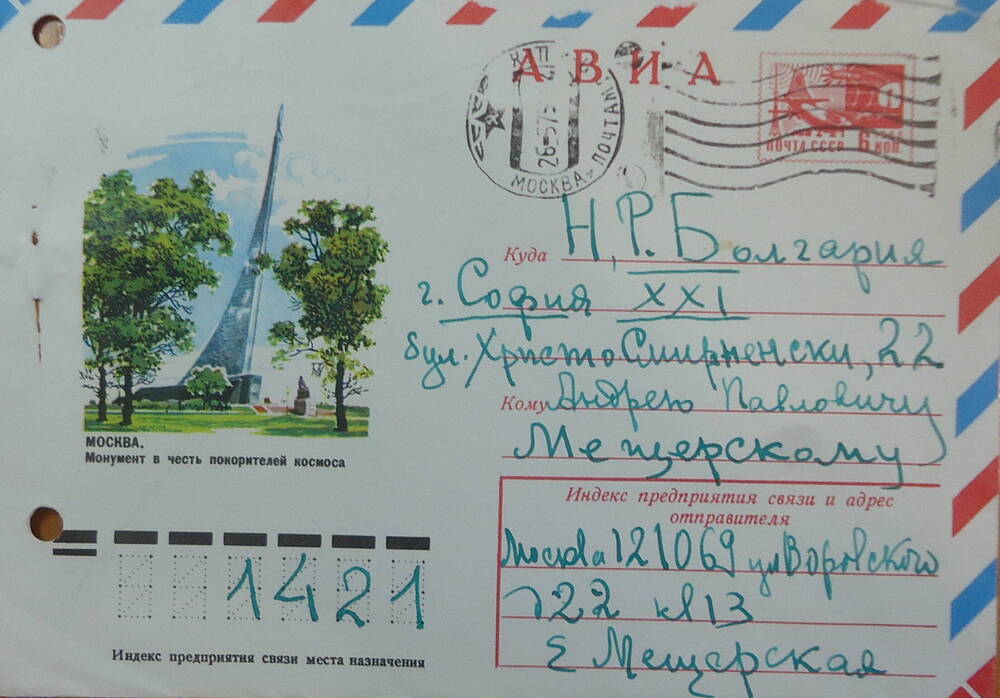 АВИА
МОСКВА
ПОЧТАМТ
26-5 75
ПОЧТА СССР 6 КОП
Куда Н.Р. Болгария
г. София XXI
бул. Христо Смирненски, 22
Кому Андрею Павловичу
Мещерскому
МОСКВА.
Монумент в честь покорителей космоса
Индекс предприятия связи и адрес
отправителя
Москва 121069 ул Воровского
д 22 кв 13
Е Мещерская
1421
Индекс предприятия связи места назначения